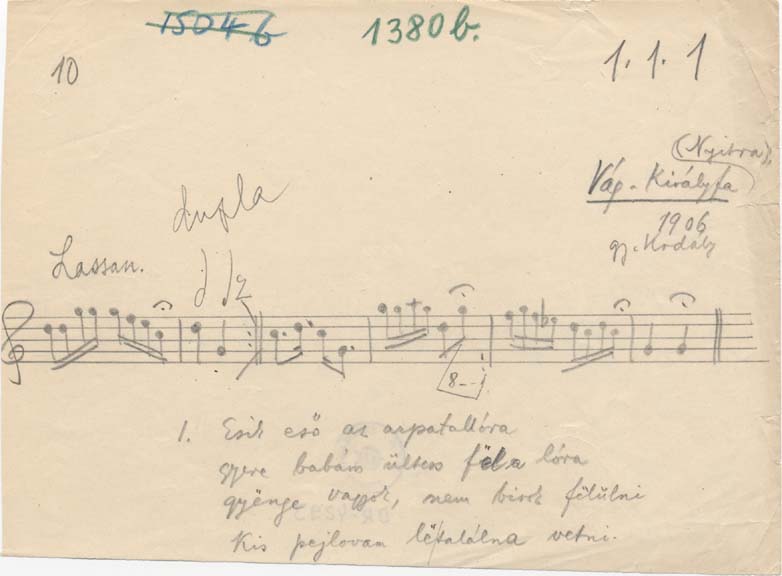 1504 b
1380 b.
10
1.1.1
(Nyitra),
Vág-Királyfa
1906
gy. Kodály
dupla
Lassan.
8--
1. Esik eső az arpatallóra
gyere babám ültess föl a lóra
gyönge vagyok, nem birok fölülni
Kis pejlovam letalálna vetni.